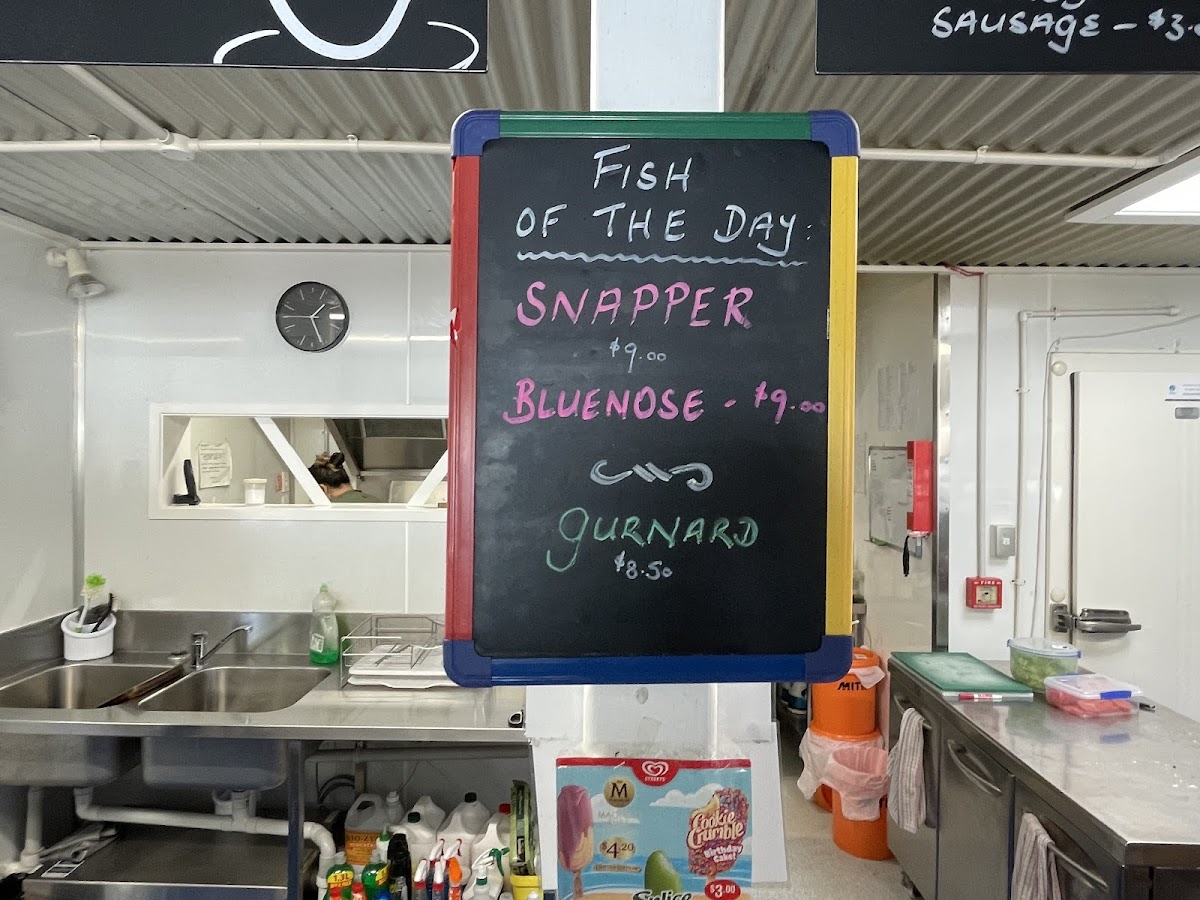 SAUSAGE - $3.
FISH
OF THE DAY:
SNAPPER
$9.00
BLUENOSE - $9.00
GURNARD
$8.50
FIRE
STREETS
M
$4.20
Cookie
Crumble
Birthday
Cake!
$3.00